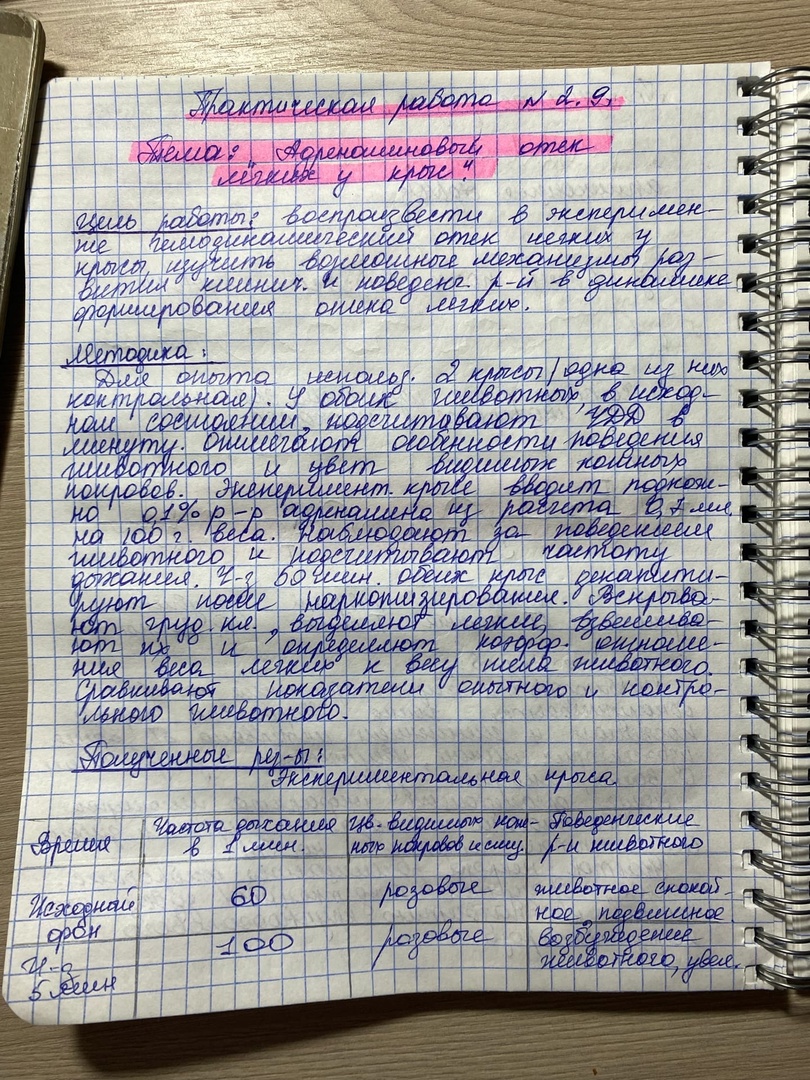 Практическая работа № 2.9.
Тема: "Адреналиновый отек
лёгких у крыс"
Цель работы: воспроизвести в эксперимен-
те гемодинамический отек легких у
крысы, изучить возможные механизмы раз-
вития клинич. и поведенч. р-й в динамике
формирования отека легких.
Методика:
Для опыта использ. 2 крысы (одна из них
контрольная). У обоих животных в исход-
ном состоянии подсчитывают ЧДД в
минуту. Отмечают особенности поведения
животного и цвет видимых кожных
покровов. Эксперимент. крысе вводят подкож-
но 0,1% р-р адреналина из расчёта 0,7 мл
на 100 г. веса. Наблюдают за поведением
животного и подсчитывают частоту
дыхания. Ч-з 50 мин. обоих крыс декапити-
руют после наркотизирования. Вскрыва-
ют груд. кл., выделяют легкие, взвешива-
ют их и определяют коэфф. отноше-
ния веса легких к весу тела животного.
Сравнивают показатели опытного и контро-
льного животного.
Полученные рез-ты:
Экспериментальная крыса
Время
Частота дыхания
в 1 мин.
Цв. видимых кож-
ных покровов и слиз.
Поведенческие
р-и животного
Исходный
фон
60
розовые
животное спокой-
ное, подвижное
Ч-з
5 мин
100
розовые
возбуждение
животного, увел.